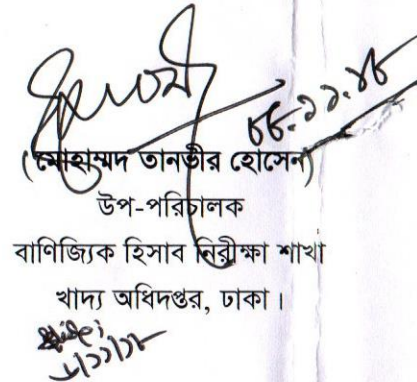 (মোহাম্মদ তানভীর হোসেন)
উপ-পরিচালক
বাণিজ্যিক হিসাব নিরীক্ষা শাখা
খাদ্য অধিদপ্তর, ঢাকা।